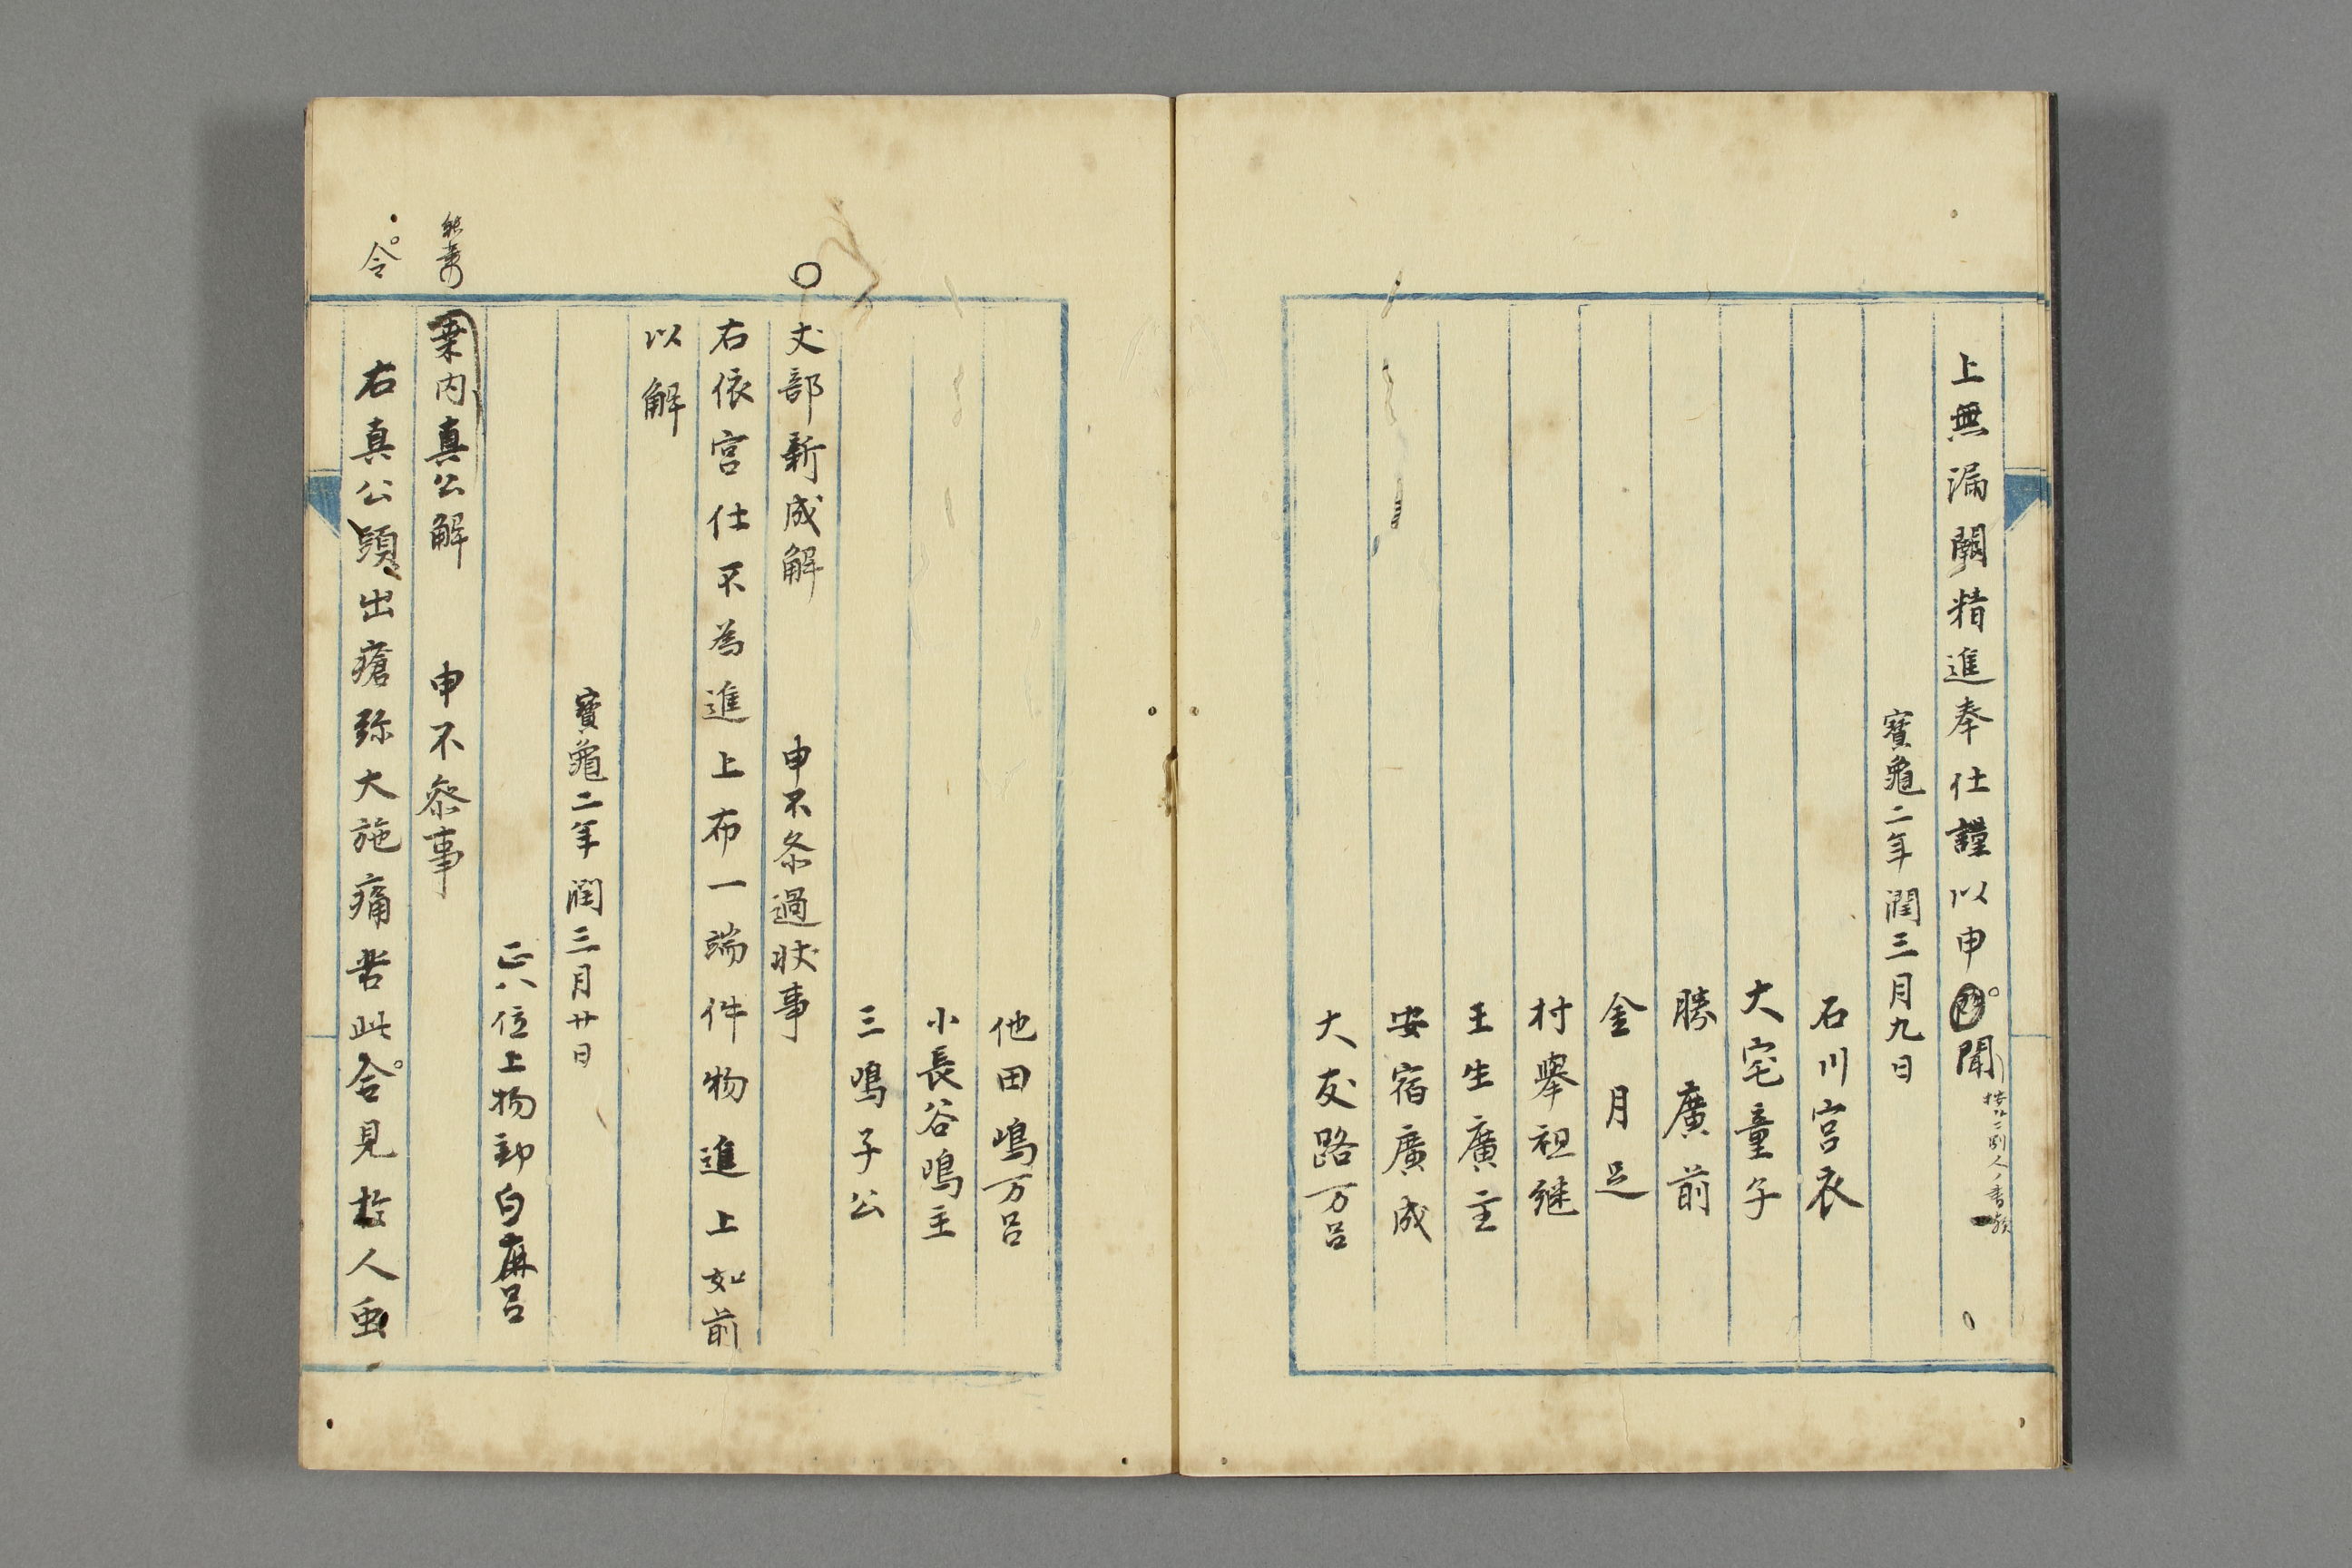 上無漏闕精進奉仕謹以申聞
寳龜二年潤三月九日
石川宮衣
大宅童子
勝廣前
金月足
村擧祖継
王生廣主
安宿廣成
大友路万呂
他田嶋万呂
小長谷鳴主
三鳴子公
丈部新成解 申不参過状事
右依宮仕不為進上布一端件物進上如前
以解
寳龜二年潤三月廿日
正八位上物部白麻呂
桒内真公解 申不参事
令
右真公頭出瘡弥大施痛苦此令見故人虫